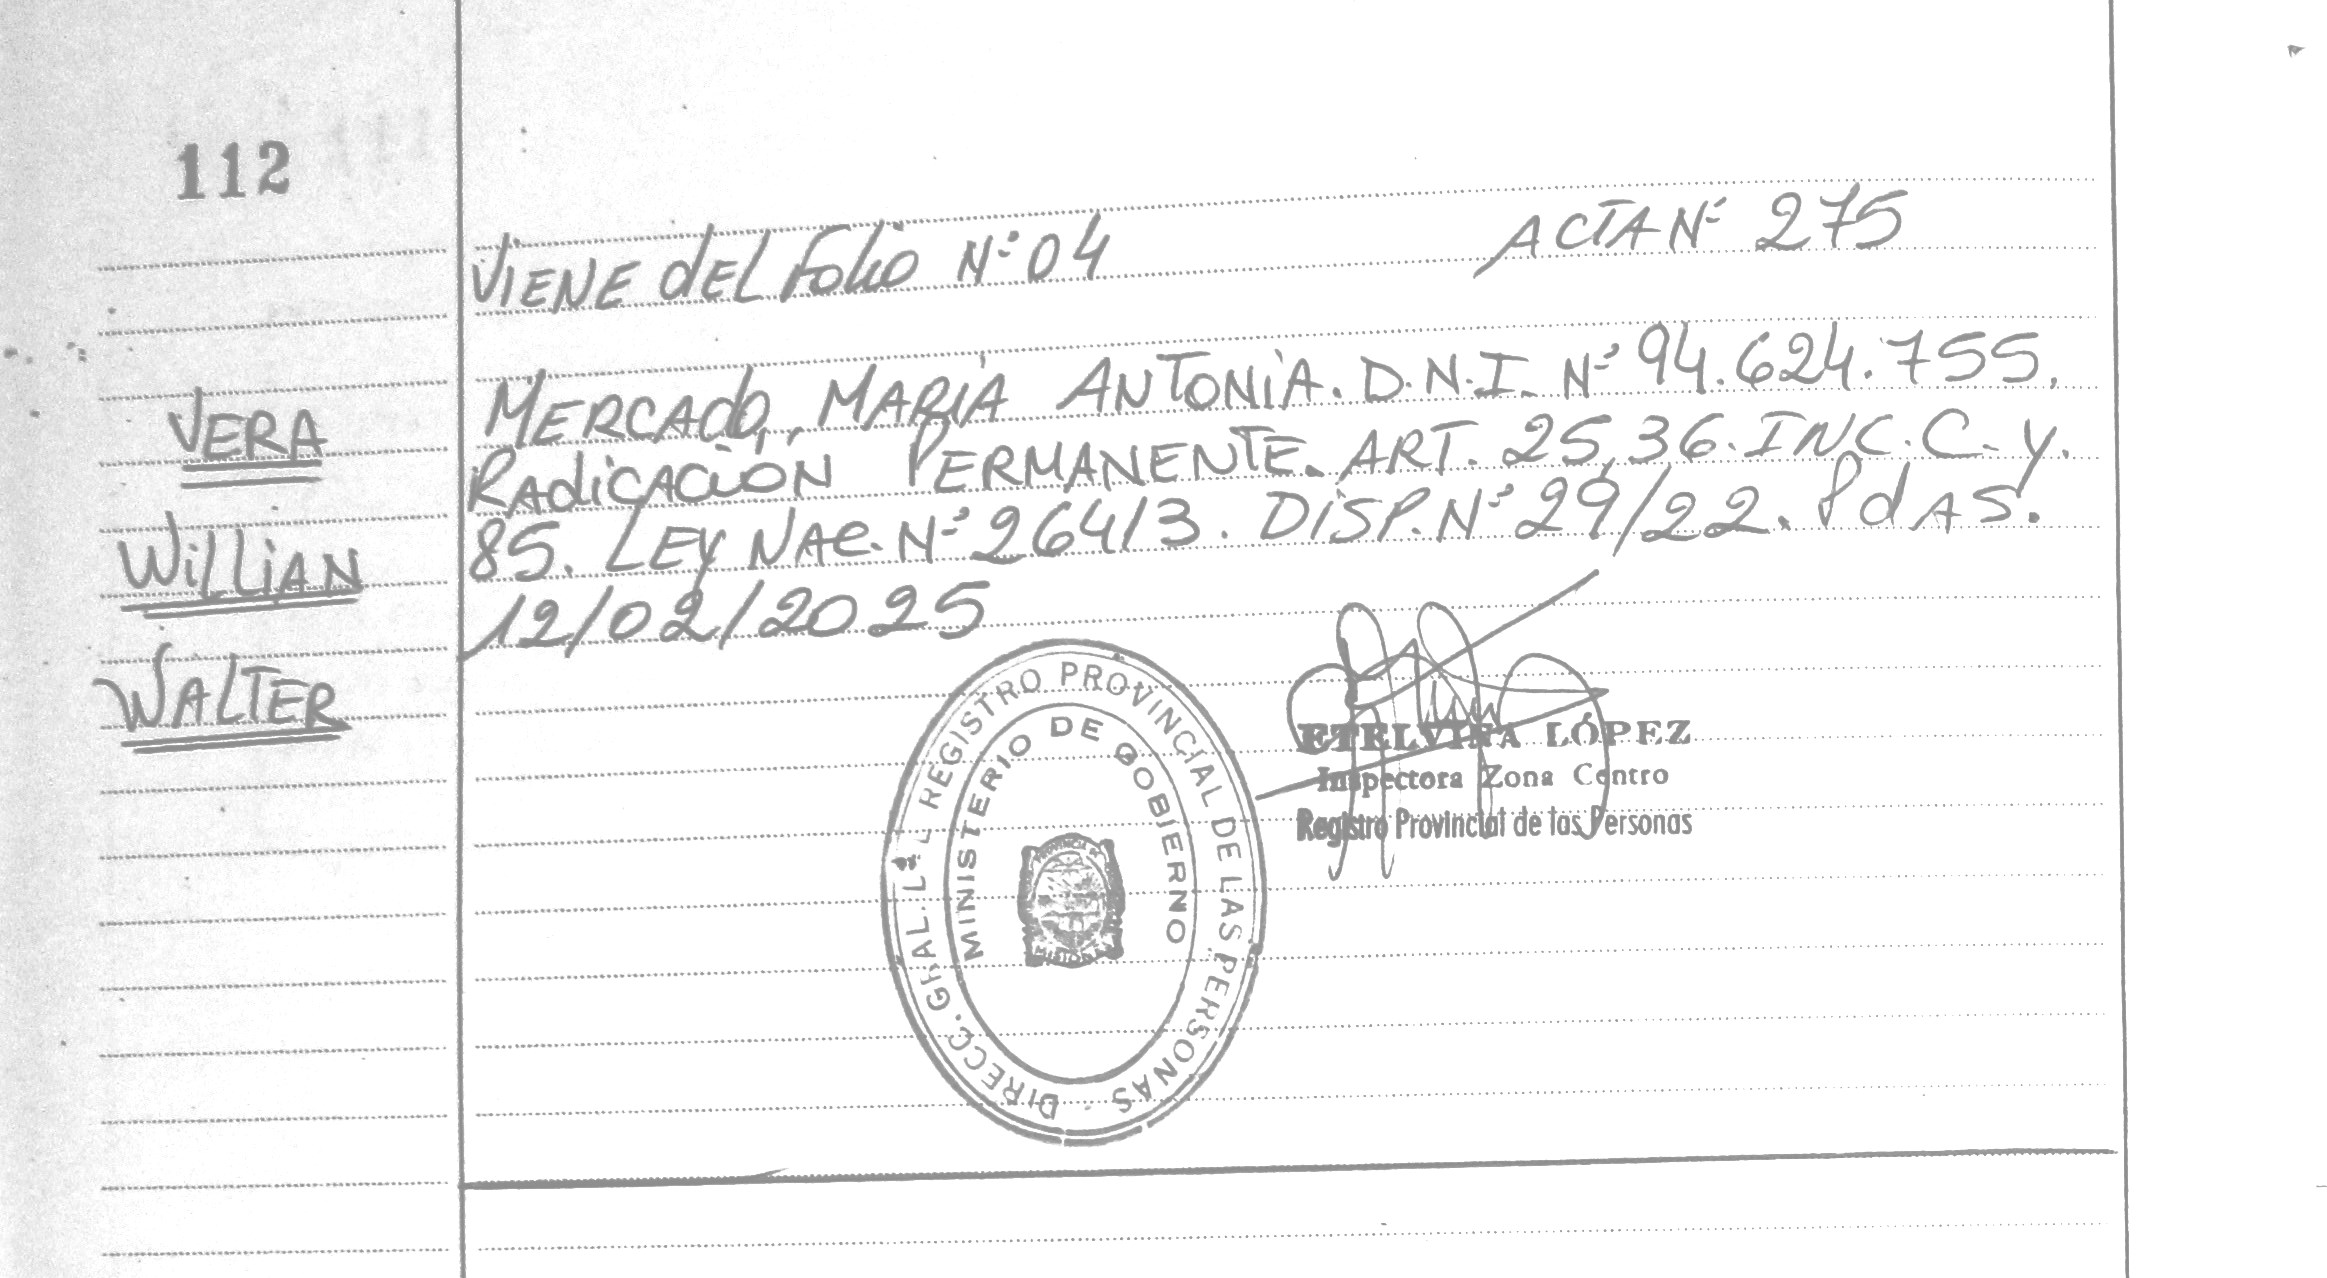 112
VIENE dEL Folio Nº 04
ACTA Nº 275
VERA
WilliAN
WALTER
MERCAdo, MARÍA ANTONiA. D.N.I. Nº 94.624.755.
RAdicACiÓN PERMANENTE. ART. 25,36. INC. C. y.
85. LEY NAC. Nº 26413. DiSP. Nº 29/22. PdAS.
12/02/2025
DIRECC. GRAL. REGISTRO PROVINCIAL DE LAS PERSONAS
MINISTERIO DE GOBIERNO
PROVINCIA DE
MISIONES
ETELVINA LÓPEZ
Inspectora Zona Centro
Registro Provincial de las Personas